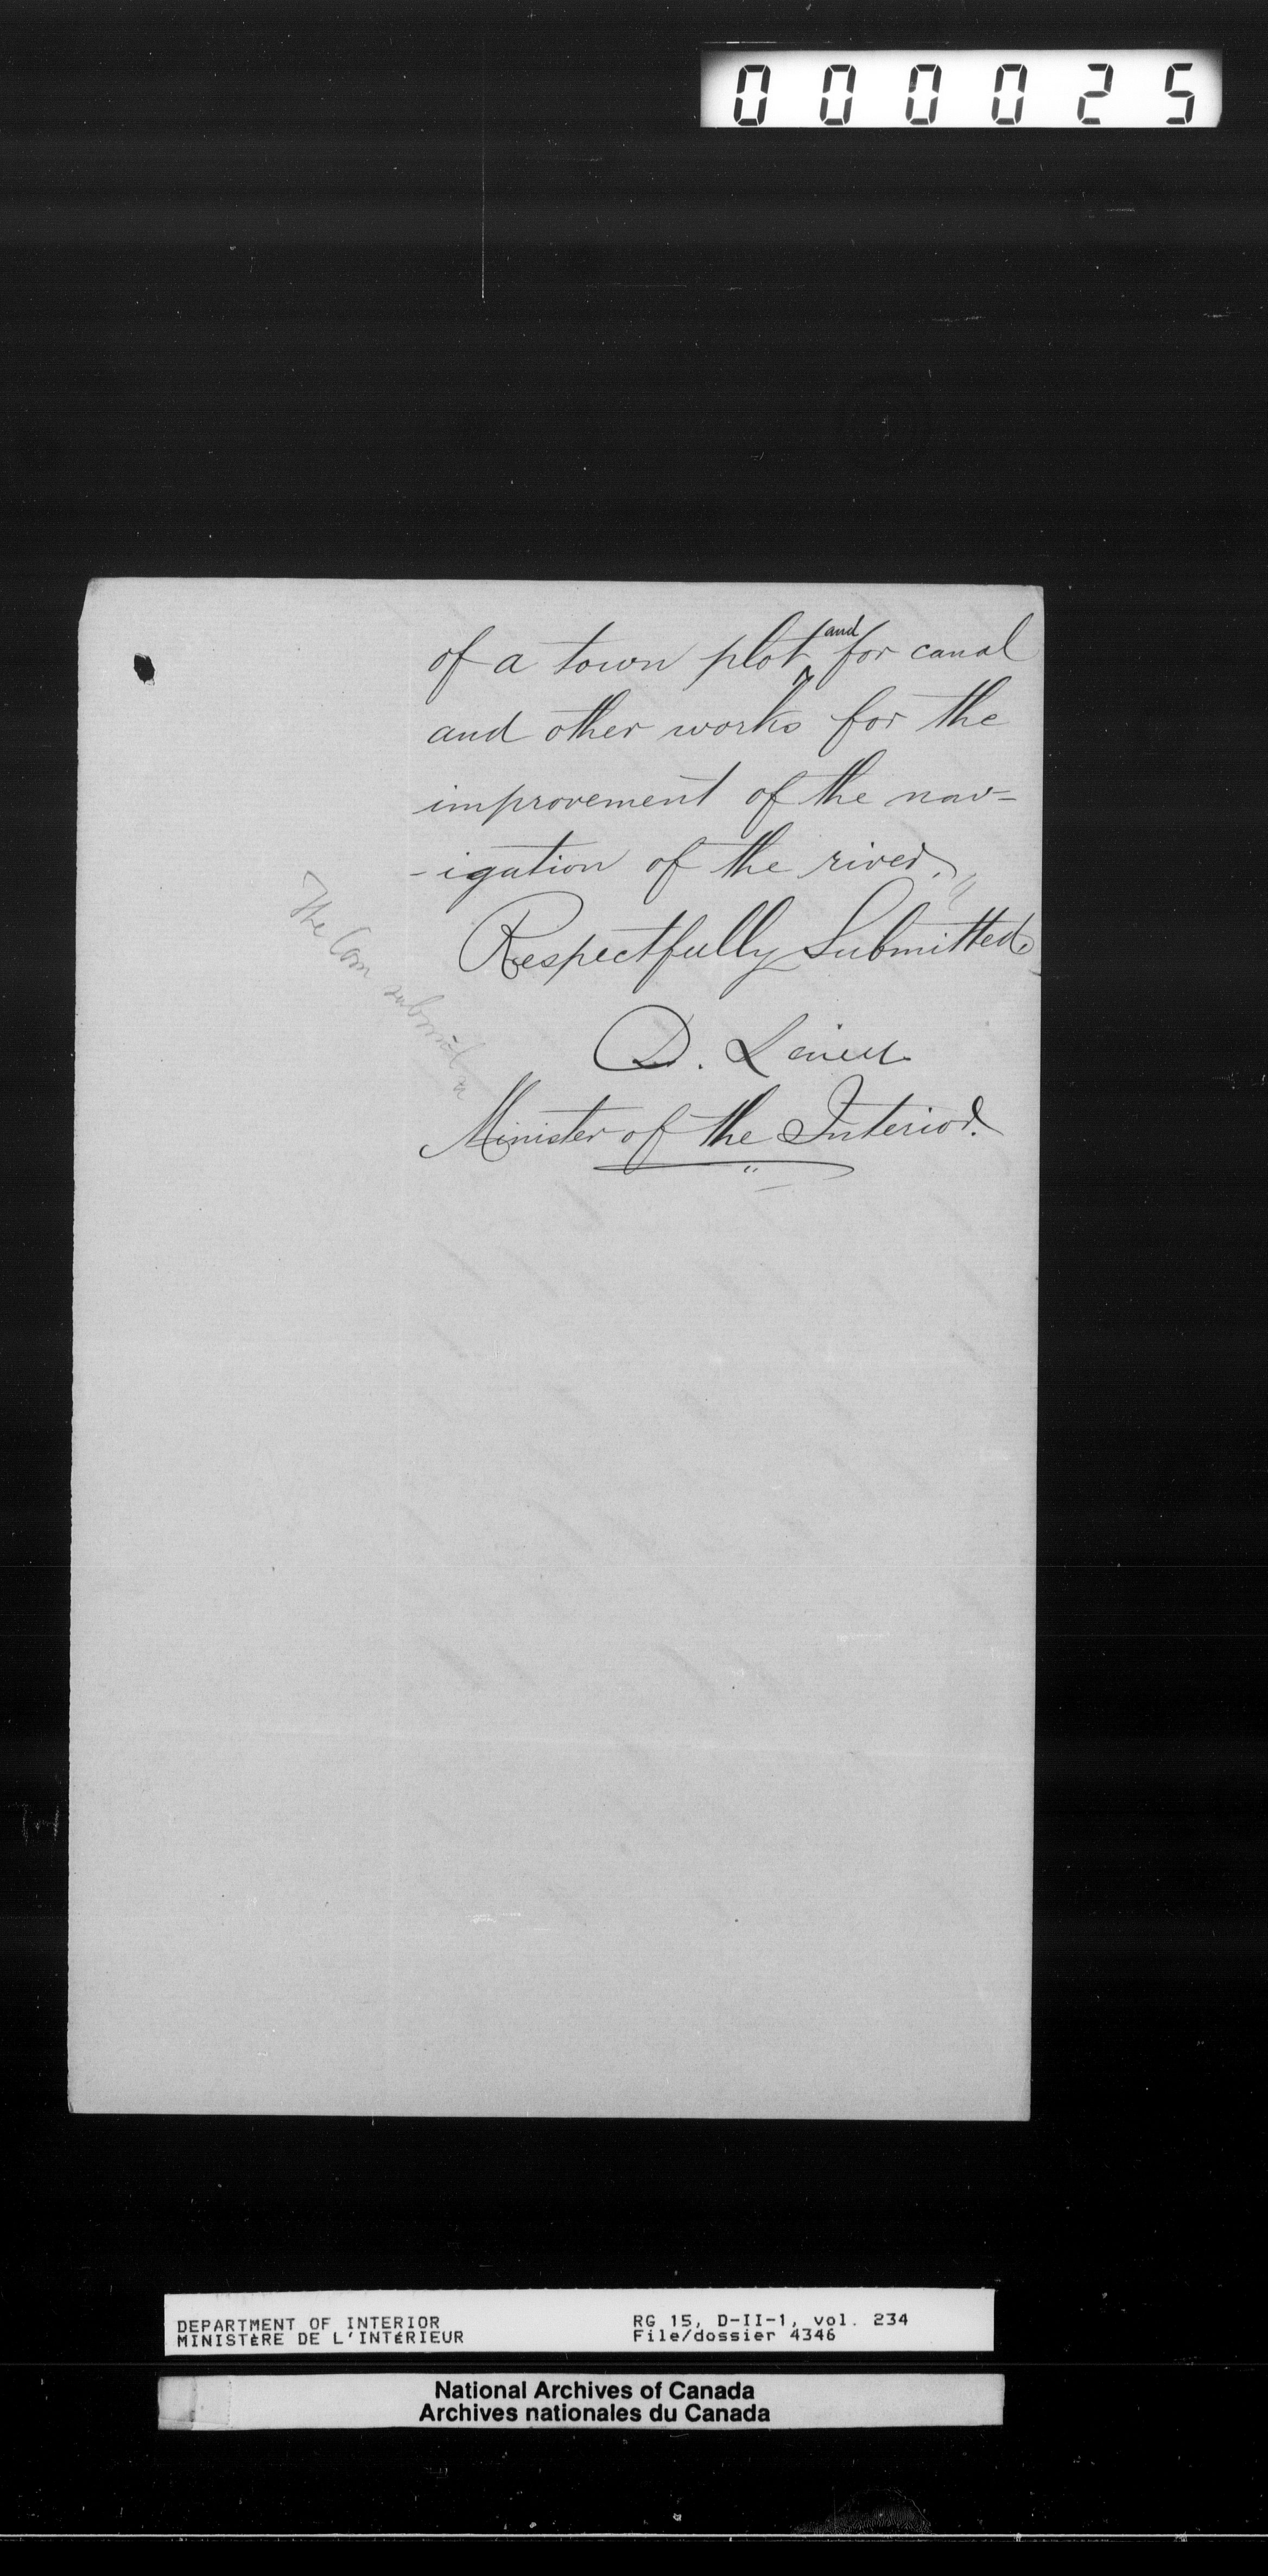 000025
of a town plot and for canal
and other works for the
improvement of the nav=
-igation of the river."
Respectfully Submitted
The Com submit
D. Laird
Minister of the Interior.
DEPARTMENT OF INTERIOR
MINISTÈRE DE L'INTÉRIEUR
RG 15, D-II-1, vol. 234
File/dossier 4346
National Archives of Canada
Archives nationales du Canada